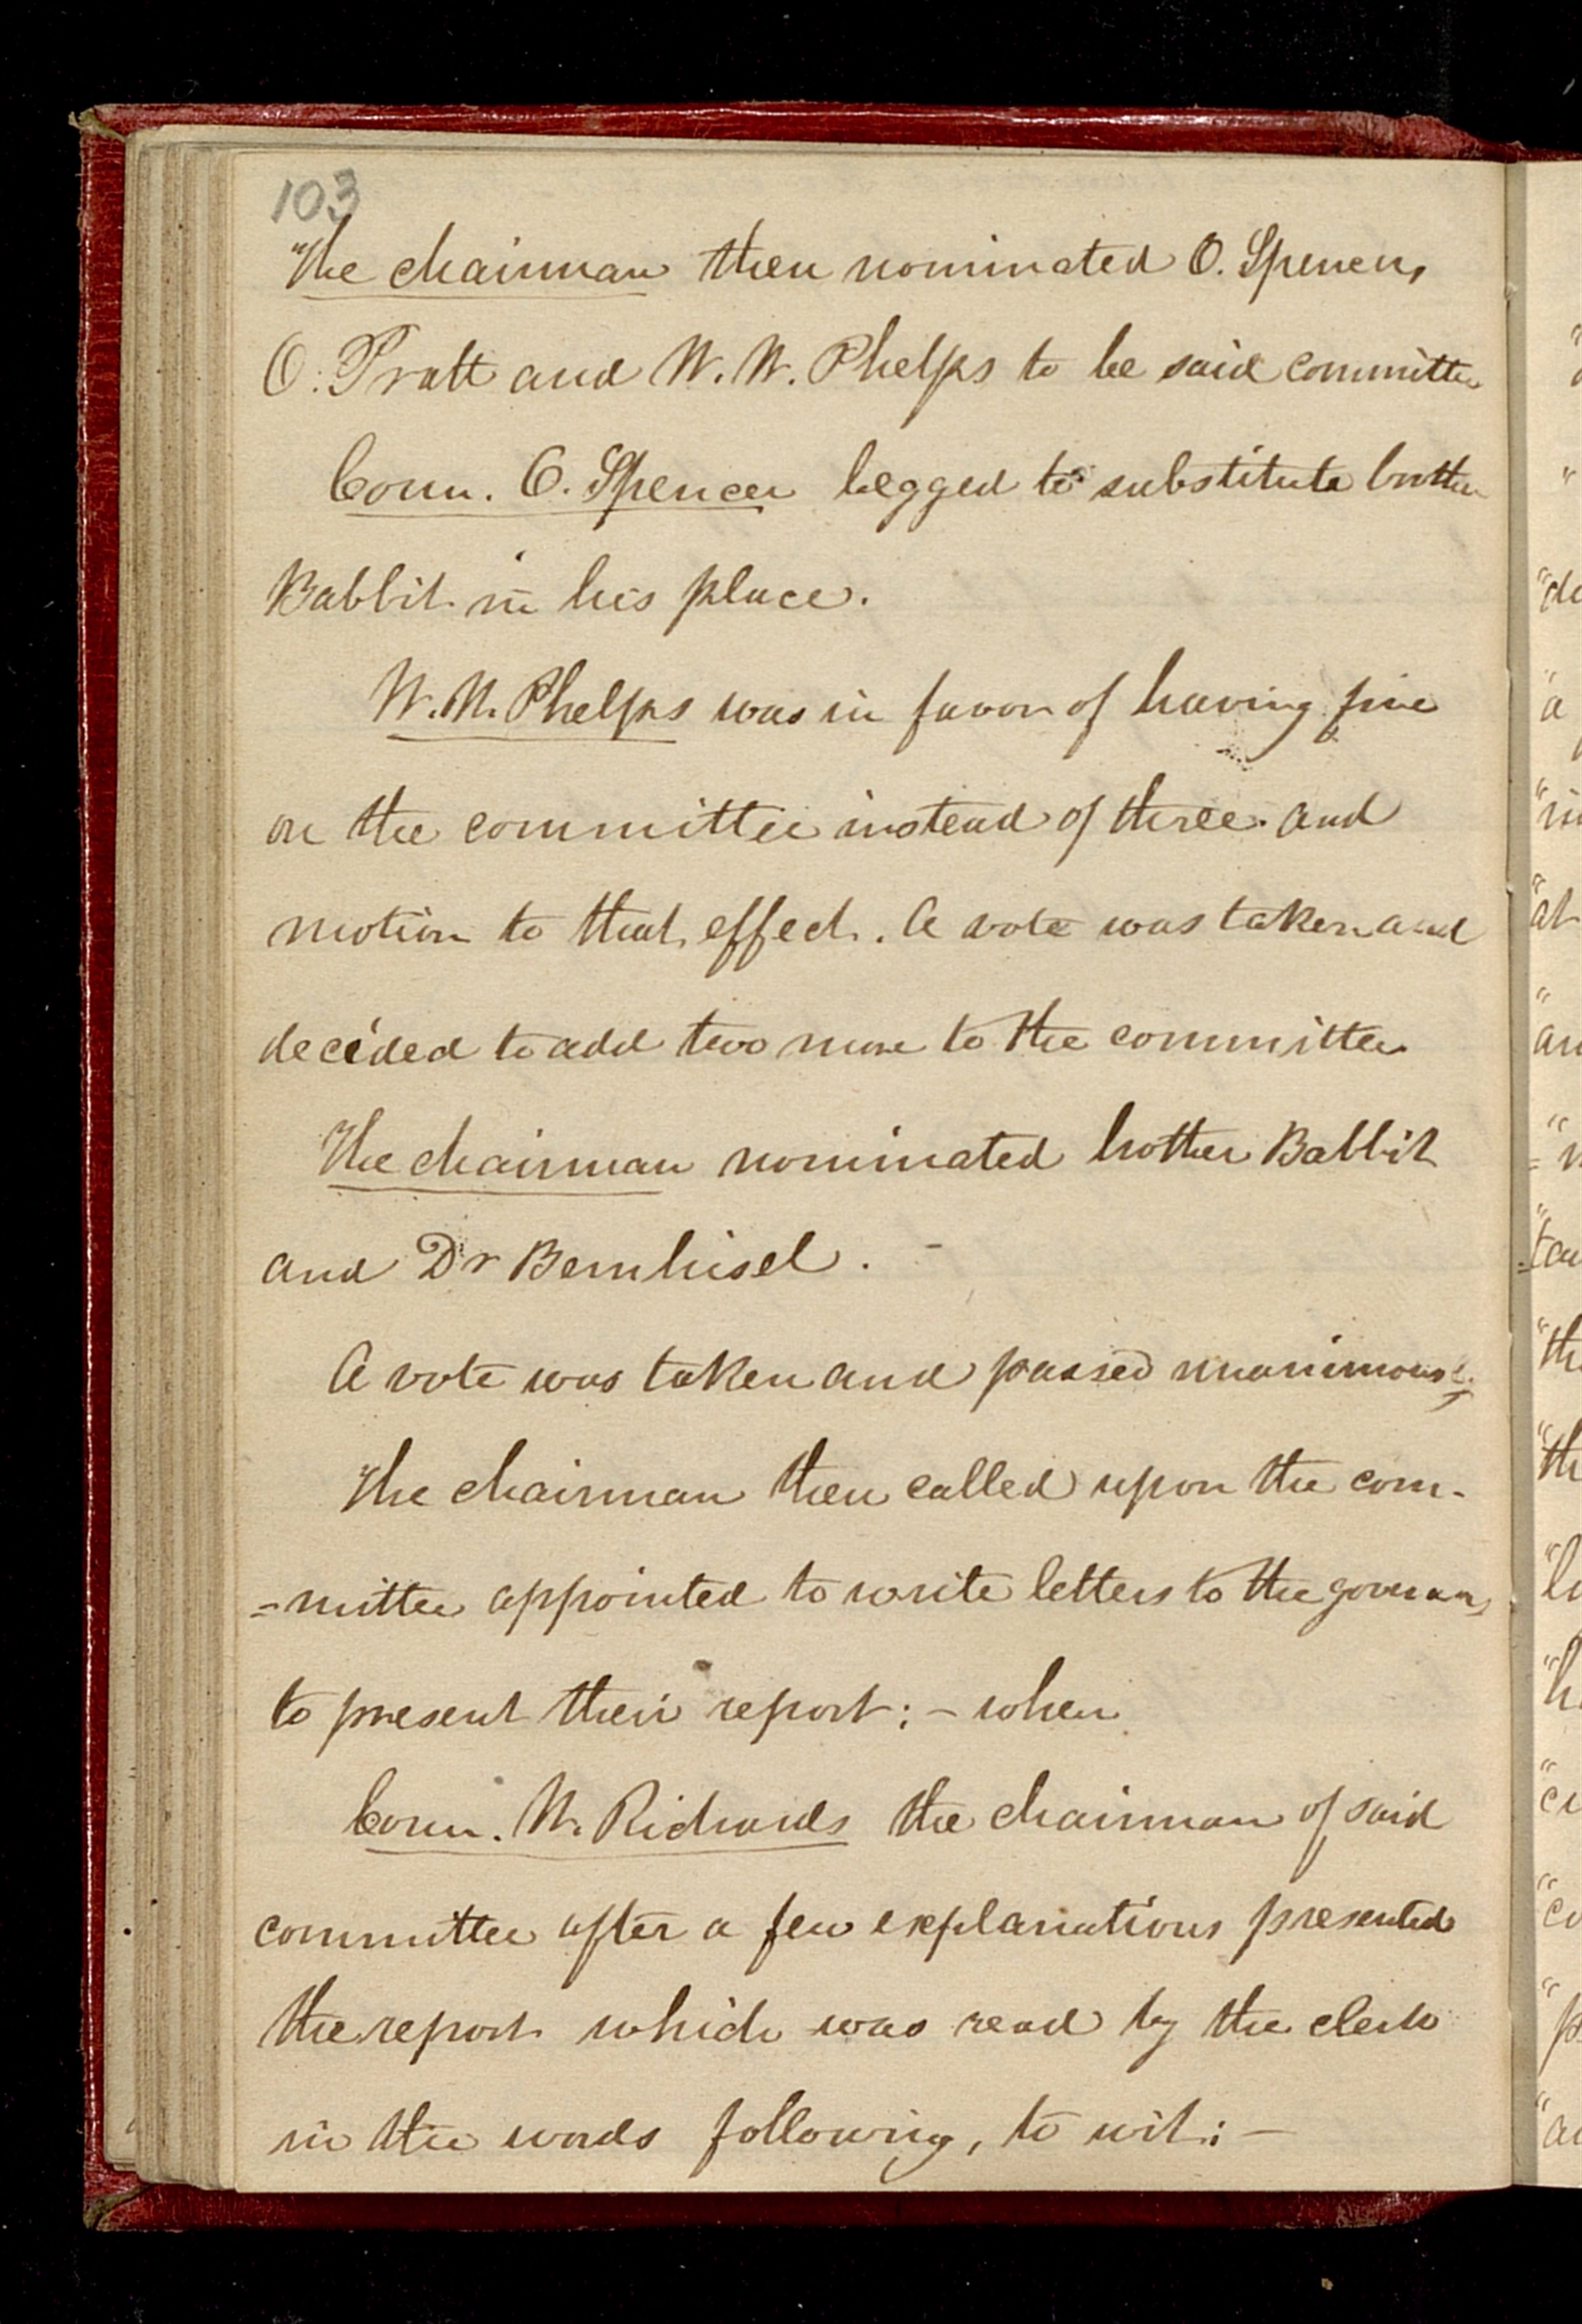 103
The chairman then nominated O. Spencer,
O. Pratt and W. W. Phelps to be said committee
Coun. O. Spencer begged to substitute brother
Babbit in his place.
W. W. Phelps was in favor of having five
on the committee instead of three. and
motion to that effect. A vote was taken and
decided to add two more to the committee
The chairman nominated brother Babbit
and Dr Bernhisel.
A vote was taken and passed unanimously
The chairman then called upon the com-
=mittee appointed to write letters to the governors
to present their report; – when
Coun. W. Richards the chairman of said
committee after a few explanations presented
the report which was read by the clerk
in the words following, to wit: –